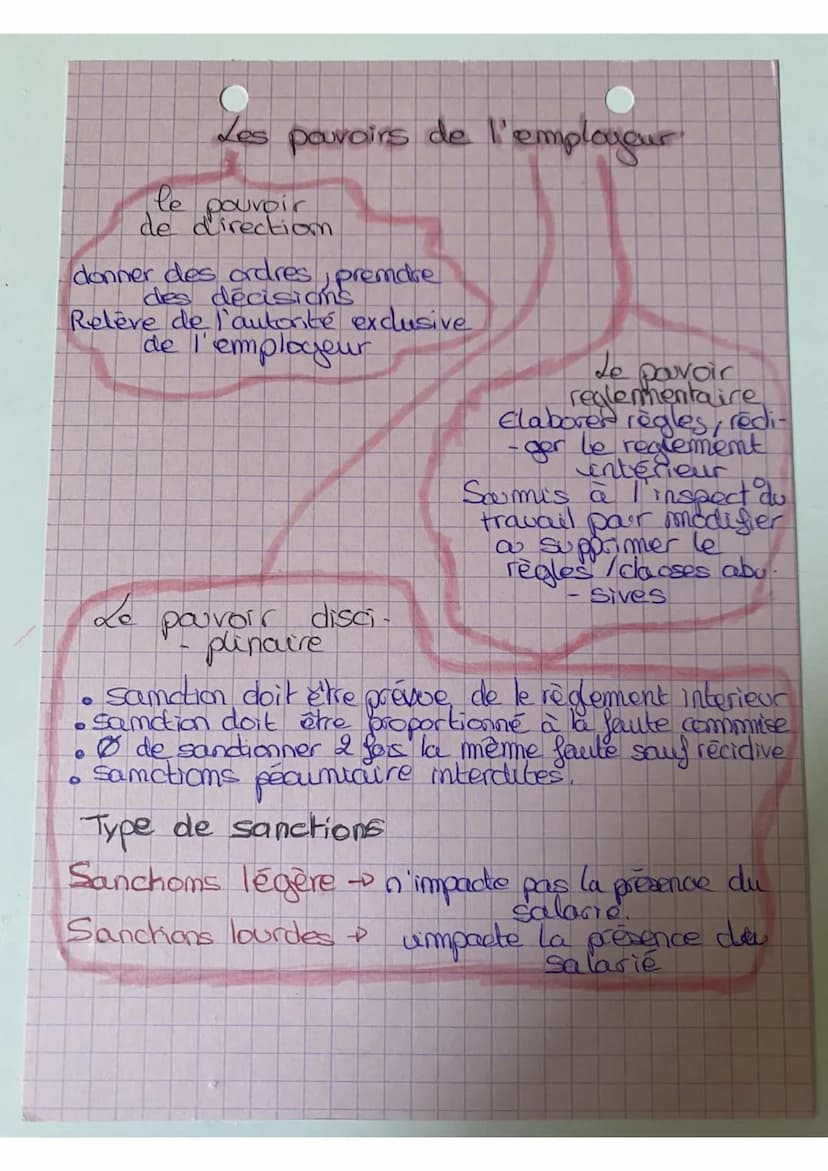 Les pouvoirs de l'employeur
le pouvoir
de direction
donner des ordres, prendre
des décisions
Relève de l'autorité exclusive
de l'employeur
Le pouvoir
reglementaire
Elaborer règles, rédi-
-ger le reglement
intérieur
Soumis à l'inspect° du
travail pour modifier
ou supprimer le
règles / clauses abu-
-sives
Le pouvoir disci-
-plinaire
• sanction doit être prévue de le règlement interieur
• sanction doit être proportionné à la faute commise
• Ø de sanctionner 2 fois la même faute sauf récidive
• sanctions pécuniaire interdites.
Type de sanctions
Sanctions légère → n'impacte pas la présence du
salarié.
Sanctions lourdes → impacte la présence du
salarié